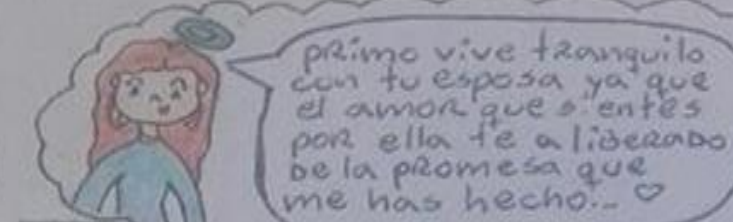 PRimo vive tRanquilo
con tu esposa ya que
el amoR que sientes
poR ella te a libeRADO
De la pRomesa que
me has hecho... ♡